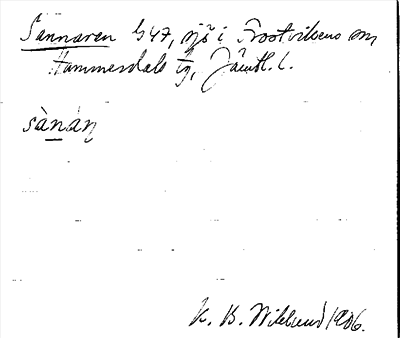 Sannaren G47, sjö i Frostvikens sn
Hammerdals tg, Jämtl. l.
sànáŋ
K. B. Wiklund 1906.